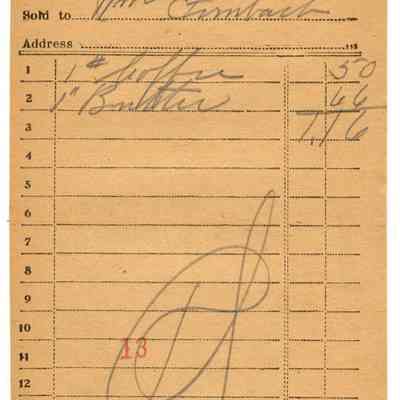 Sold to Wm Limbach
Address
1 1# Coffee 50
2 1" Butter 66
3 1,16
4
5
6
7
8
9
10
11 13
12